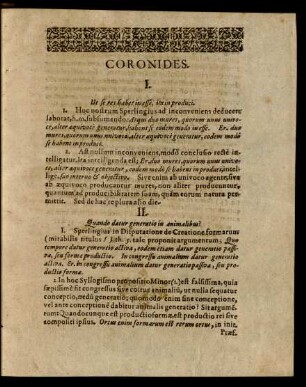 CORONIDES.
I.
Ut se res habet in esse, ita in produci.
1. Hoc nostrum Sperlingius ad inconveniens deducere
laborat, subsumendo: Atqui duo mures, quorum unus univo-
ce, alter æquivoce generatur, habent se eodem modo in esse. Er. duo
mures, quorum unus univoce, alter æquivoce generatur, eodem modo
se habent in produci.
2. Ast nullum inconveniens, modò conclusio rectè in-
telligatur, ita intelligenda est: Er. duo mures, quorum unus univo-
ce, alter æquivoce generatur, eodem modo se habent in produci, intel-
lige,
Sive enim ab univoco agente, sive
ab æquivoco producantur mures, non aliter producuntur,
quantum ad productibilitatem suam, quàm eorum natura per-
mittit. Sed de hac re plura alio die.
II.
Quando datur generatio in animalibus?
1. Sperlingius in Disputatione de Creatione formarum
(mirabilis titulus) proponit argumentum. Quo
tempore datur generatio activa, eodem etiam datur generatio passi-
va, seu forma productio. In congressu animalium datur generatio
activa. Er. in congressu animalium datur generatio passiva, seu pro-
ductio formæ.
2. In hoc Syllogismo propositio Minor est falsissima, quia
sæpissimè fit congressus sive coitus animaliū, ut nulla sequatur
conceptio, nedū generatio; quomodo enim sine conceptione,
vel ante conceptionem dabitur animaliū generatio? Sit argumē-
tum: Quandocunque est productio formæ, est productio rei sive
compositi ipsius. Ortus enim formarum est rerum ortus, in init.
Præf.